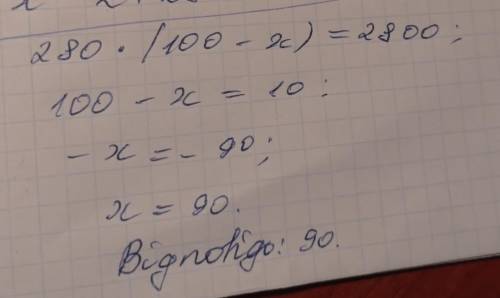 280 · (100 - x) = 2800;
100 - x = 10;
- x = - 90;
x = 90.
Відповідь: 90.